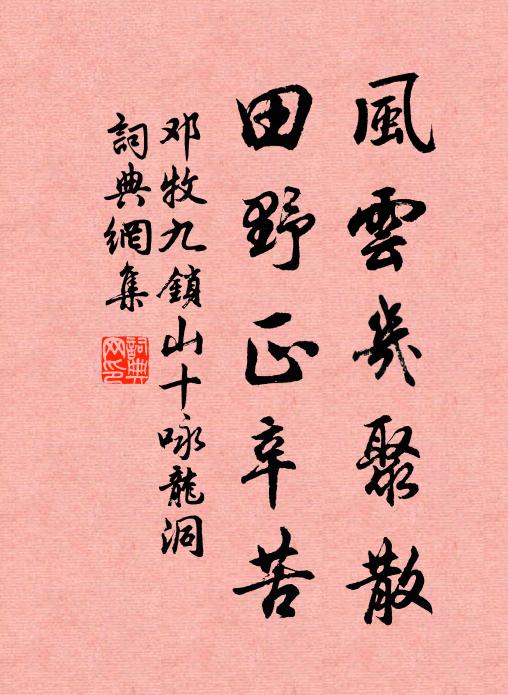 風雲幾聚散
田野正辛苦
邓牧九鎖山十咏龍洞
詞典網集
詞典網印